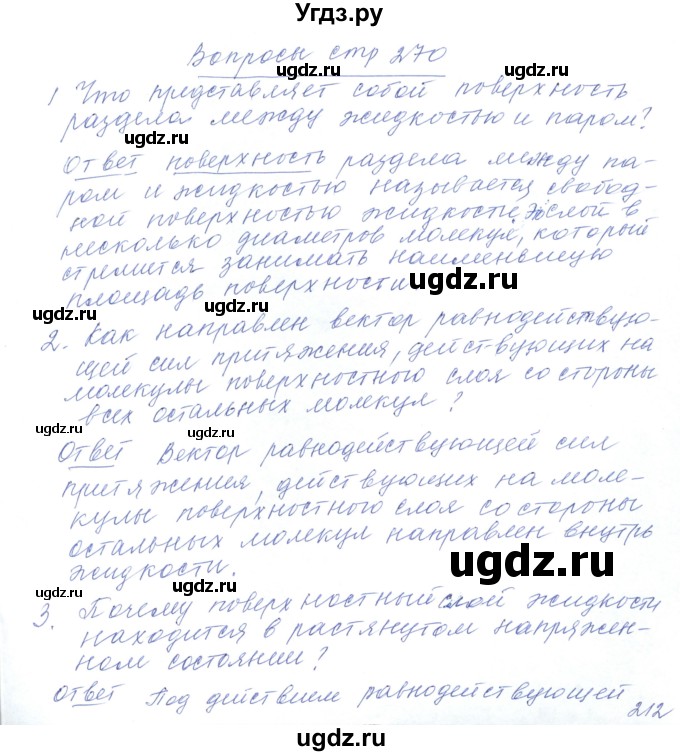 Угдз.ру
Вопросы стр 270
ugdz.ru
ugdz.ru
1 Что представляет собой поверхность
раздела между жидкостью и паром?
ugdz.ru
ugdz.ru
Ответ поверхность раздела между па-
ром и жидкостью называется свобод-
ugdz.ru
ной поверхностью жидкости, Это слой в
несколько диаметров молекул, который
стремится занимать наименьшую
площадь поверхности
ugdz.ru
ugdz.ru
2. Как направлен вектор равнодействую-
щей сил притяжения, действующих на
ugdz.ru
молекулы поверхностного слоя со стороны
всех остальных молекул?
ugdz.ru
ugdz.ru
Ответ Вектор равнодействующей сил
притяжения, действующих на моле-
ugdz.ru
кулы поверхностного слоя со стороны
остальных молекул направлен внутрь
жидкости.
ugdz.ru
ugdz.ru
3. Почему поверхностный слой жидкости
находится в растянутом напряжен-
ugdz.ru
ном состоянии?
ugdz.ru
ugdz.ru
Ответ Под действием равнодействующей
212
ugdz.ru